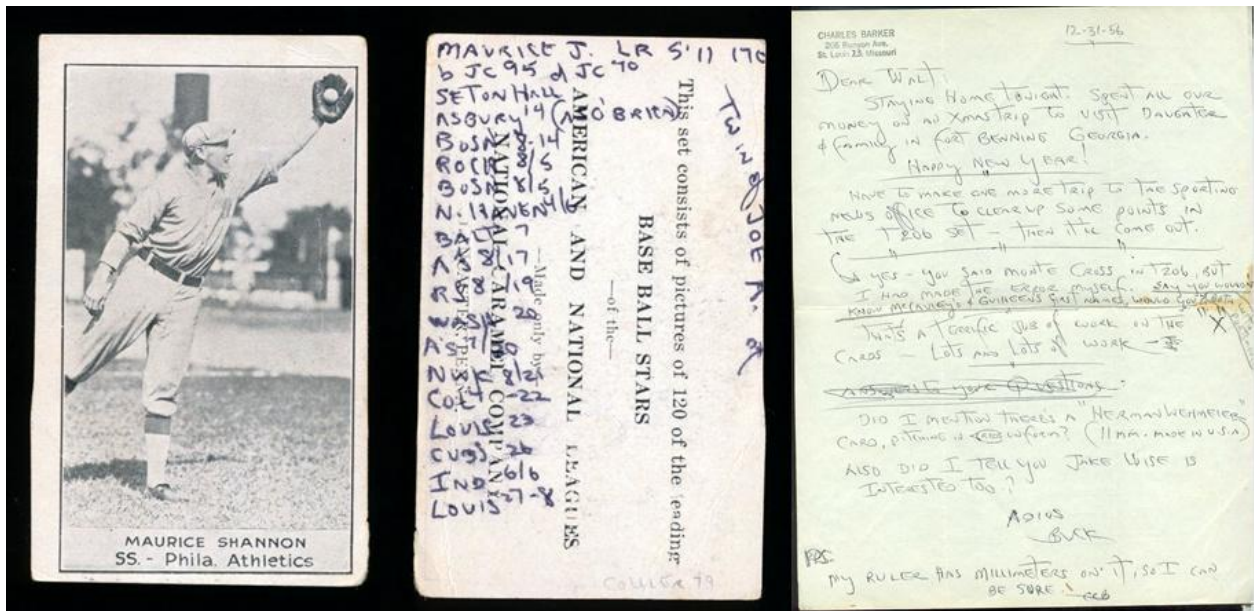 MAURICE SHANNON
SS. - Phila. Athletics
MAURICE J. LR 5'11 170
b JC 95 d JC 70
SETON HALL
ASBURY '14 (A O'BRIEN)
BOSN 8-14
ROCH 8/5
BOSN 8/5
N. HAVEN 4/6
BALT 7
A'S 8/17
RS 8/19
WASH 20
A'S 7/20
NYK 8/21
COL 22
LOUIS 23
CUBS 26
IND 6/6
LOUIS 27-8
TWIN of JOE A.
This set consists of pictures of 120 of the leading
BASE BALL STARS
—of the—
AMERICAN AND NATIONAL LEAGUES
—Made only by—
NATIONAL CARAMEL COMPANY
LANCASTER, PENNA.
COLLIER 79
CHARLES BARKER
St. Louis 23, Missouri
12-31-56
DEAR WALT:
STAYING HOME TONIGHT. SPENT ALL OUR
MONEY ON AN XMAS TRIP TO VISIT DAUGHTER
& FAMILY IN FORT BENNING GEORGIA.
HAPPY NEW YEAR!
HAVE TO MAKE ONE MORE TRIP TO THE SPORTING
NEWS OFFICE TO CLEAR UP SOME POINTS IN
THE T206 SET — THEN IT'LL COME OUT.
YES — YOU SAID MONTE CROSS IN T206, BUT
I HAD MADE THE ERROR MYSELF. SAY, YOU WOULDN'T
KNOW & FIRST NAMES, WOULD YOU?
THAT'S A TERRIFIC JOB OF WORK ON THE
CARDS — LOTS AND LOTS OF WORK
ANSWERS TO YOUR QUESTIONS:
DID I MENTION THERE'S A "HERMAN WEHMEIER"
CARD, PITCHING IN UNIFORM? (11 MM. MADE IN U.S.A.)
ALSO DID I TELL YOU JAKE WISE IS
INTERESTED TOO?
ADIOS
BUCK
PPS.
MY RULER HAS MILLIMETERS ON IT, SO I CAN
BE SURE. CCB